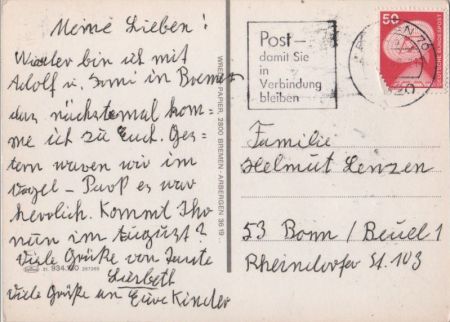 Meine Lieben!
Wieder bin ich mit
Adolf u. Somi in Bremen
das nächstemal kom=
me ich zu Euch. Ges=
tern waren wir im
Vogel-Park es war
herrlich. Kommt Ihr
nun im August?
Viele Grüße von Tante
Liesbeth
Viele Grüße an Eure Kinder
WREDE PAPIER, 2800 BREMEN-ARBERGEN
934.
Post-
damit Sie
in
Verbindung
bleiben
50
DEUTSCHE BUNDESPOST
Familie
Helmut Lenzen
53 Bonn / Beuel 1
Rheindorfer St. 103